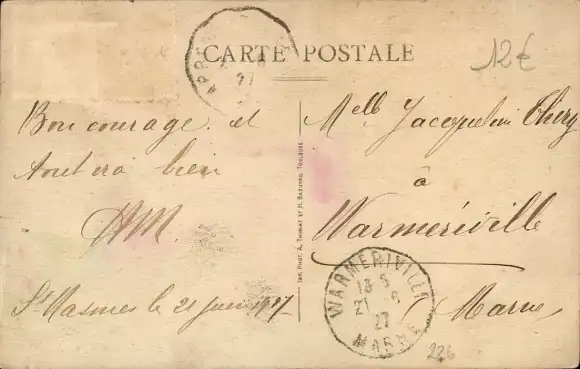 CARTE POSTALE
12€
Bon courage. et
tout ira bien
St Masmes le 21 juin 1927
IMP. PHOT. A. THIRIAT ET H. BASUYAU, TOULOUSE
Melle Jacqueline Thery
à
Warmeriville
Marne
WARMERIVILLE
13 5
21 - 6
27
MARNE
226